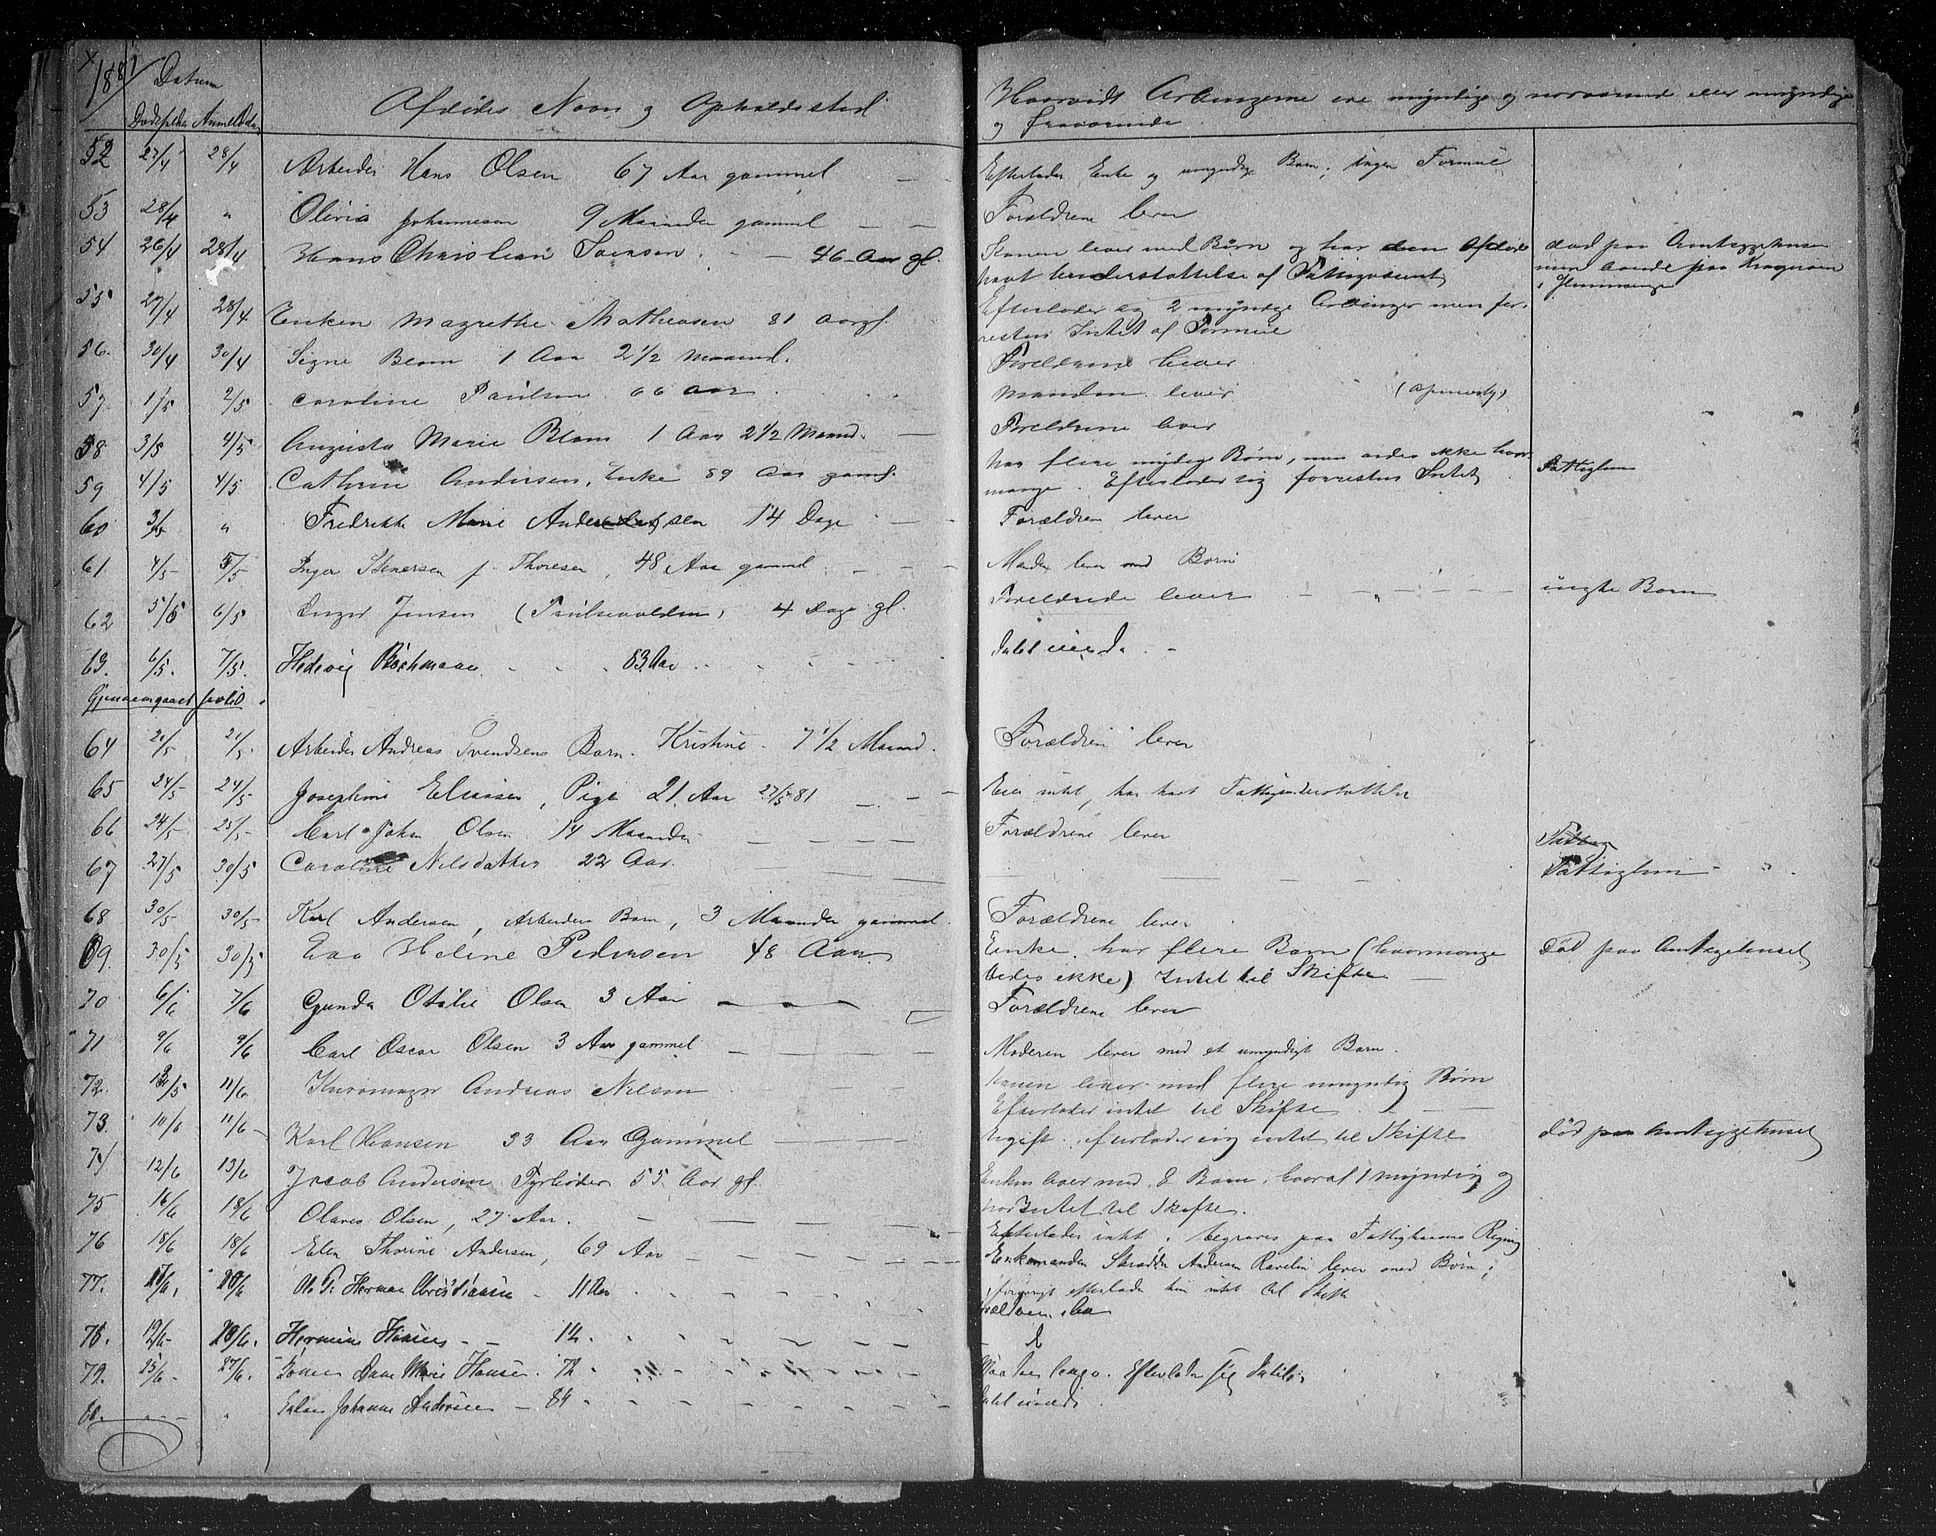 1881 Datum
Dødsfaldet Anmeldelse Afdødes Navn og Opholdssted Hvorvidt Arvingerne ere myndige og nærværende eller umyndige
og fraværende
52 27/4 28/4 Arbeider Hans Olsen 67 Aar gammel Efterlader Enke og umyndige Børn, ingen Formue
53 28/4 " Olivia Johannesen 9 Maaneder gammel Forældrene lever
54 26/4 28/4 Hans Christian Iversen 46 Aar gl. Konen lever med Børn og har den Afdøde død paa Amtssygehuset
havt Understøttelse af Fattigvæsenet men boede paa
55 27/4 28/4 Enken Magrethe Mathiesen 81 Aar gl. Efterlader sig 2 myndige Arvinger men for-
resten Intet af Formue
56. 30/4 30/4 Signe Blom 1 Aar 2 1/2 Maaned. Foreldrene lever
57 1/5 2/5 Caroline Paulsen 66 Aar Manden lever
58 3/5 4/5 Augusta Marie Blom 1 Aar 2 1/2 Maaned. Foreldrene lever
59 4/5 4/5 Cathrine Andersen, Enke 89 Aar gamel. har flere myndige Børn, men vides ikke hvor Fattiglem
mange. Efterlader sig forresten Intet
60 3/5 " Fredrikke Marie Andersen 14 Dage Forældrene lever
61 4/5 5/5 Inger Stenersen f. Thoresen, 48 Aar gammel Manden lever med Børn
62 5/5 6/5 Jensen (Paulsevolden) 4 Dage gl. Foreldrene lever ingte Barn
63. 6/5. 7/5. Hedevig 83 Aar
Gjennemgaaet
64 20/5 21/5 Arbeider Andreas Svendsens Barn. Kristine. 7 1/2 Maaned. Forældrene lever
65 24/5 24/5 Josephine Eliasen, Pige 21 Aar 27/5 81 Eier intet, har havt Fattigunderstøttelse
66 24/5 25/5 Carl Johan Olsen 14 Maaneder Forældrene lever
67 27/5 30/5 Caroline Nilsdatter 22 Aar. Fattiglem
68 30/5 30/5 Karl Andersen, Arbeiders Barn, 3 Maaneder gammel Forældrene lever
69. 30/5 30/5 Eva Helene Pedersen 48 Aar Enke, har flere Børn (hvormange Død paa Amtsygehuset
vides ikke) Intet til Skifte
70 6/6 7/6 Gunda Otilie Olsen 3 Aar Forældrene lever
71 9/6 9/6 Carl Oscar Olsen 3 Aar gammel Moderen lever med et umyndigt Barn.
72 11/6 Andreas Nilsen Konen lever med flere umyndig Børn
Efterlader intet til Skifte
73. 10/6 11/6 Karl Hansen 33 Aar Gammel Ugift. Efterlader sig intet til Skifte Død paa Amtsygehuset
74 12/6 13/6 Jacob Andersen Fyrbøder 55 Aar gl. Enken lever med Børn, hvoraf 1 myndig og
Intet til Skifte.
75 16/6 18/6 Olaves Olsen, 27 Aar. Efterlader intet, begraves paa Fattigkassens Regning
76 18/6 18/6 Elen Thorine Andersen, 69 Aar Enkemanden Skrædder Andersen lever med Børn;
forøvrigt efterlader hun intet til Skifte
77. Herman Christiansen 11
78. 19/6 Hermine Hansen 12
79. 25/6 27/6. Marie Hansen 72 Efterlader sig
80. " Johanne Andersen 84